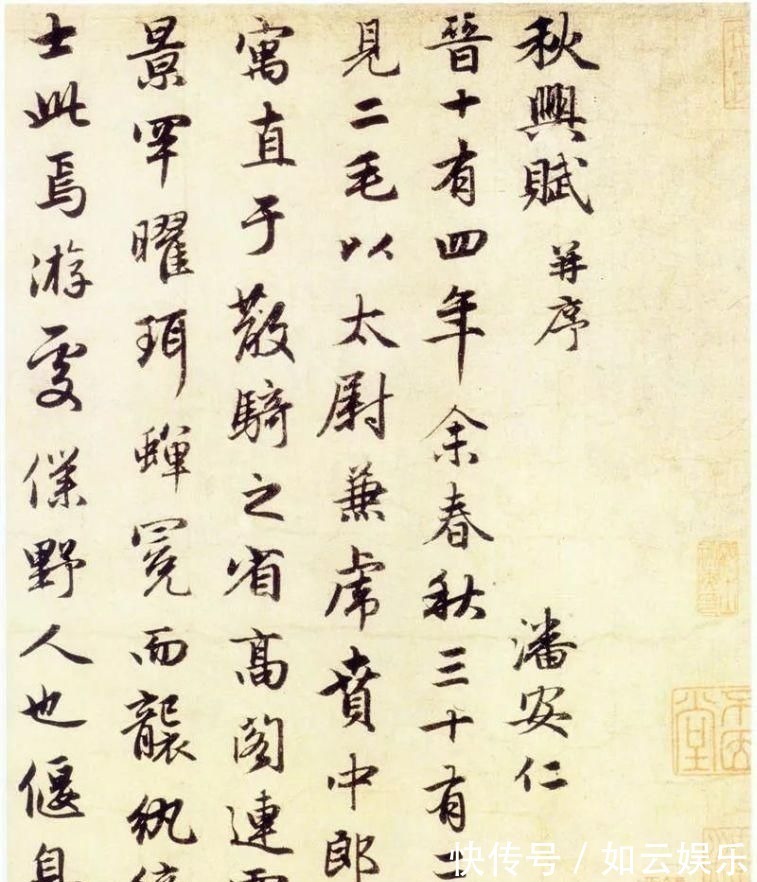 秋興賦 并序 潘安仁
晉十有四年余春秋三十有二
見二毛以太尉兼虎賁中郎
寓直于散騎之省高閣連
景罕曜珥蟬冕而襲紈
士此焉游處僕野人也偃息
快传号 / 如云娱乐